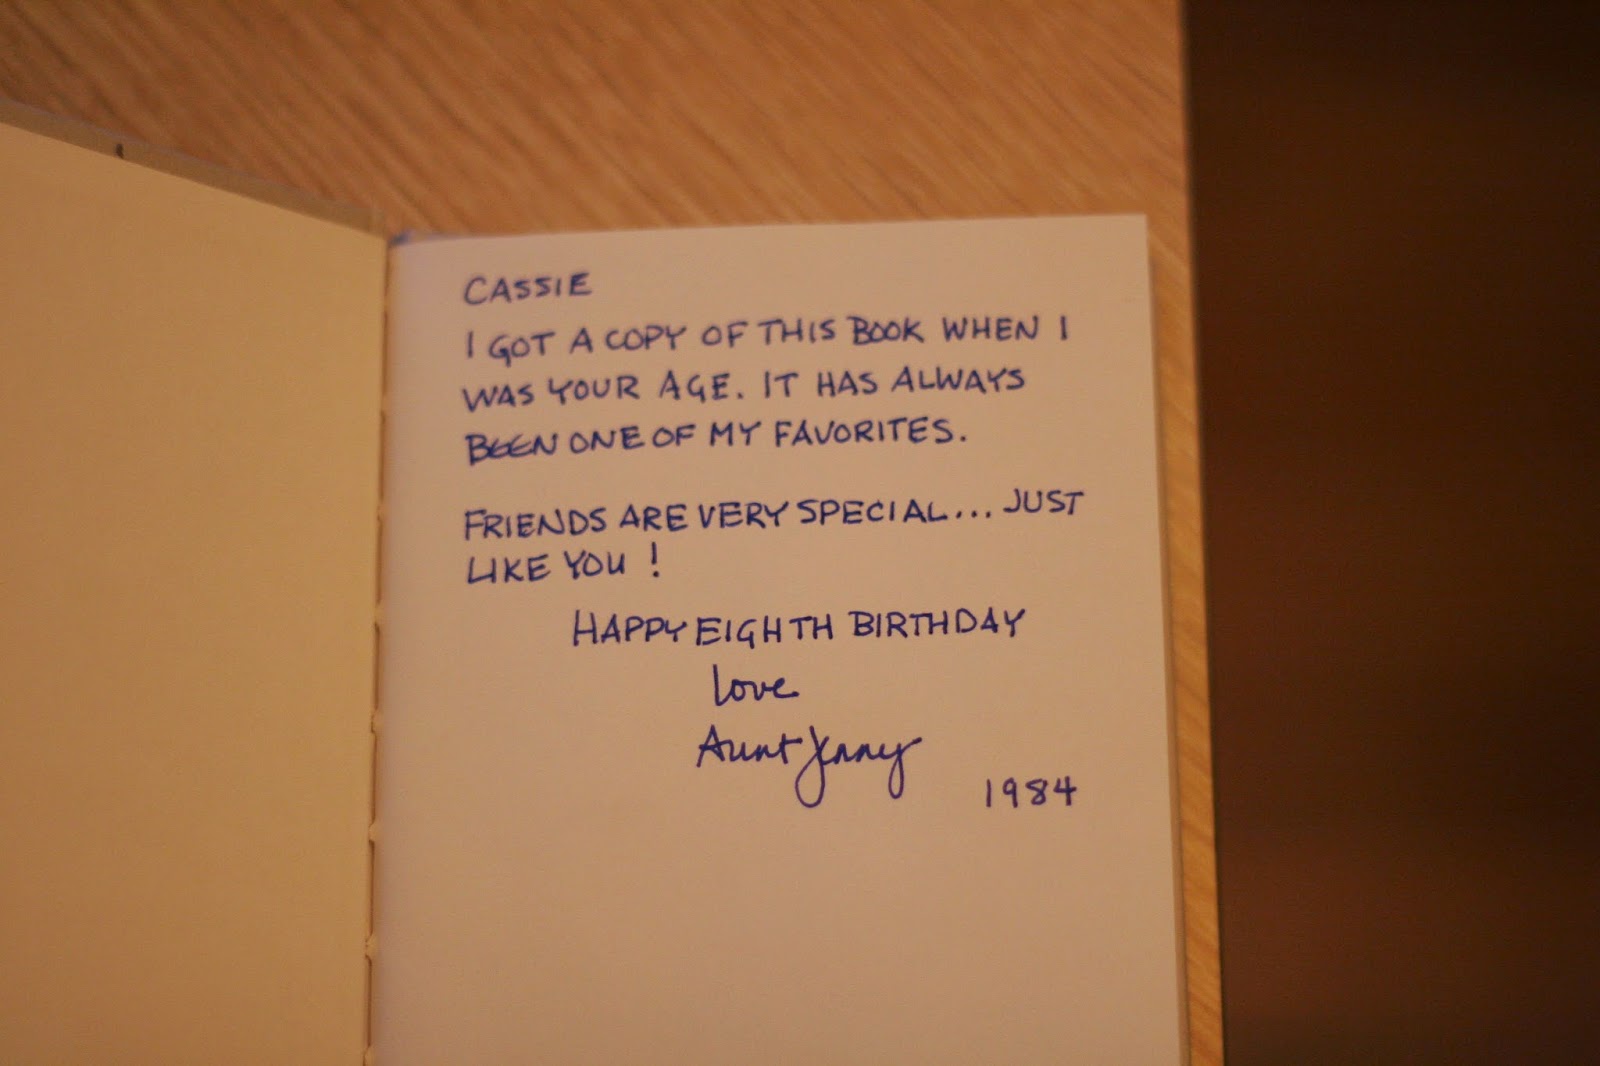 CASSIE
I GOT A COPY OF THIS BOOK WHEN I
WAS YOUR AGE. IT HAS ALWAYS
BEEN ONE OF MY FAVORITES.
FRIENDS ARE VERY SPECIAL... JUST
LIKE YOU !
HAPPY EIGHTH BIRTHDAY
love
Aunt Jenny
1984